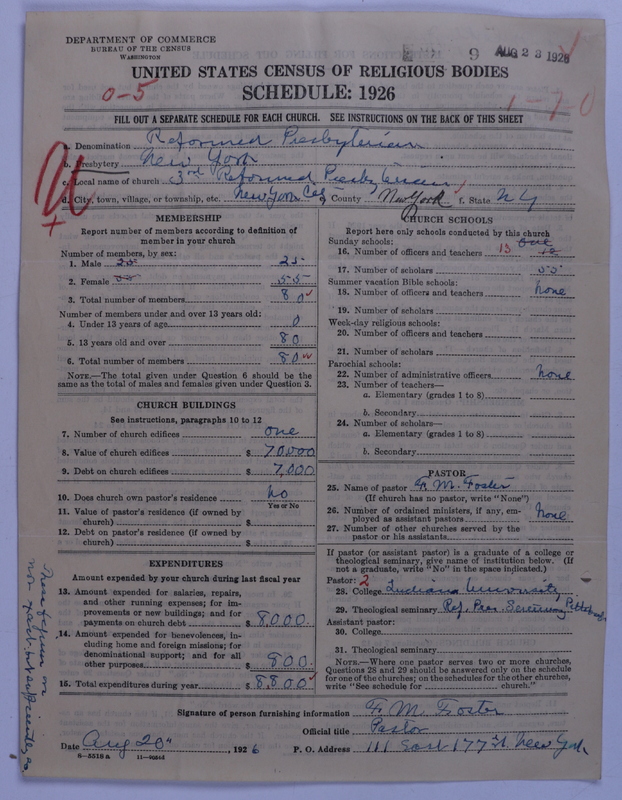 DEPARTMENT OF COMMERCE
BUREAU OF THE CENSUS
WASHINGTON
9 AUG 23 1926
UNITED STATES CENSUS OF RELIGIOUS BODIES
SCHEDULE: 1926
0-5
1-70
FILL OUT A SEPARATE SCHEDULE FOR EACH CHURCH. SEE INSTRUCTIONS ON THE BACK OF THIS SHEET
a. Denomination Reformed Presbyterian
b. Presbytery New York
c. Local name of church 3rd Reformed Presbyterian
d. City, town, village, or township, etc. New York City e. County New York f. State N Y
MEMBERSHIP
Report number of members according to definition of
member in your church
Number of members, by sex:
1. Male 25 25
2. Female 55 55
3. Total number of members 80
Number of members under and over 13 years old:
4. Under 13 years of age 0
5. 13 years old and over 80
6. Total number of members 80
NOTE.—The total given under Question 6 should be the
same as the total of males and females given under Question 3.
CHURCH BUILDINGS
See instructions, paragraphs 10 to 12
7. Number of church edifices one
8. Value of church edifices $ 70,000
9. Debt on church edifices $ 7,000
10. Does church own pastor's residence no
Yes or No
11. Value of pastor's residence (if owned by
church) $
12. Debt on pastor's residence (if owned by
church) $
EXPENDITURES
Amount expended by your church during last fiscal year
13. Amount expended for salaries, repairs,
and other running expenses; for im-
provements or new buildings; and for
payments on church debt $ 8000
14. Amount expended for benevolences, in-
cluding home and foreign missions; for
denominational support; and for all
other purposes $ 800
15. Total expenditures during year $ 8800
CHURCH SCHOOLS
Report here only schools conducted by this church
Sunday schools: one
16. Number of officers and teachers 13 12
17. Number of scholars 55
Summer vacation Bible schools:
18. Number of officers and teachers none
19. Number of scholars
Week-day religious schools:
20. Number of officers and teachers
21. Number of scholars
Parochial schools:
22. Number of administrative officers none
23. Number of teachers—
a. Elementary (grades 1 to 8)
b. Secondary
24. Number of scholars—
a. Elementary (grades 1 to 8)
b. Secondary
PASTOR
25. Name of pastor F. M. Foster
(If church has no pastor, write "None")
26. Number of ordained ministers, if any, em-
ployed as assistant pastors none
27. Number of other churches served by the
pastor or his assistants
If pastor (or assistant pastor) is a graduate of a college or
theological seminary, give name of institution below. (If
not a graduate, write "No" in the space indicated.)
Pastor: 2
28. College Indiana University
29. Theological seminary Ref. Pres. Seminary Pittsburgh
Assistant pastor:
30. College
31. Theological seminary
NOTE.—Where one pastor serves two or more churches,
Questions 28 and 29 should be answered only on the schedule
for one of the churches; on the schedules for the other churches,
write "See schedule for church."
Signature of person furnishing information F M Foster
Official title Pastor
Date Aug 20" , 1926 P. O. Address 111 East 177 St. New York
8—5518 a